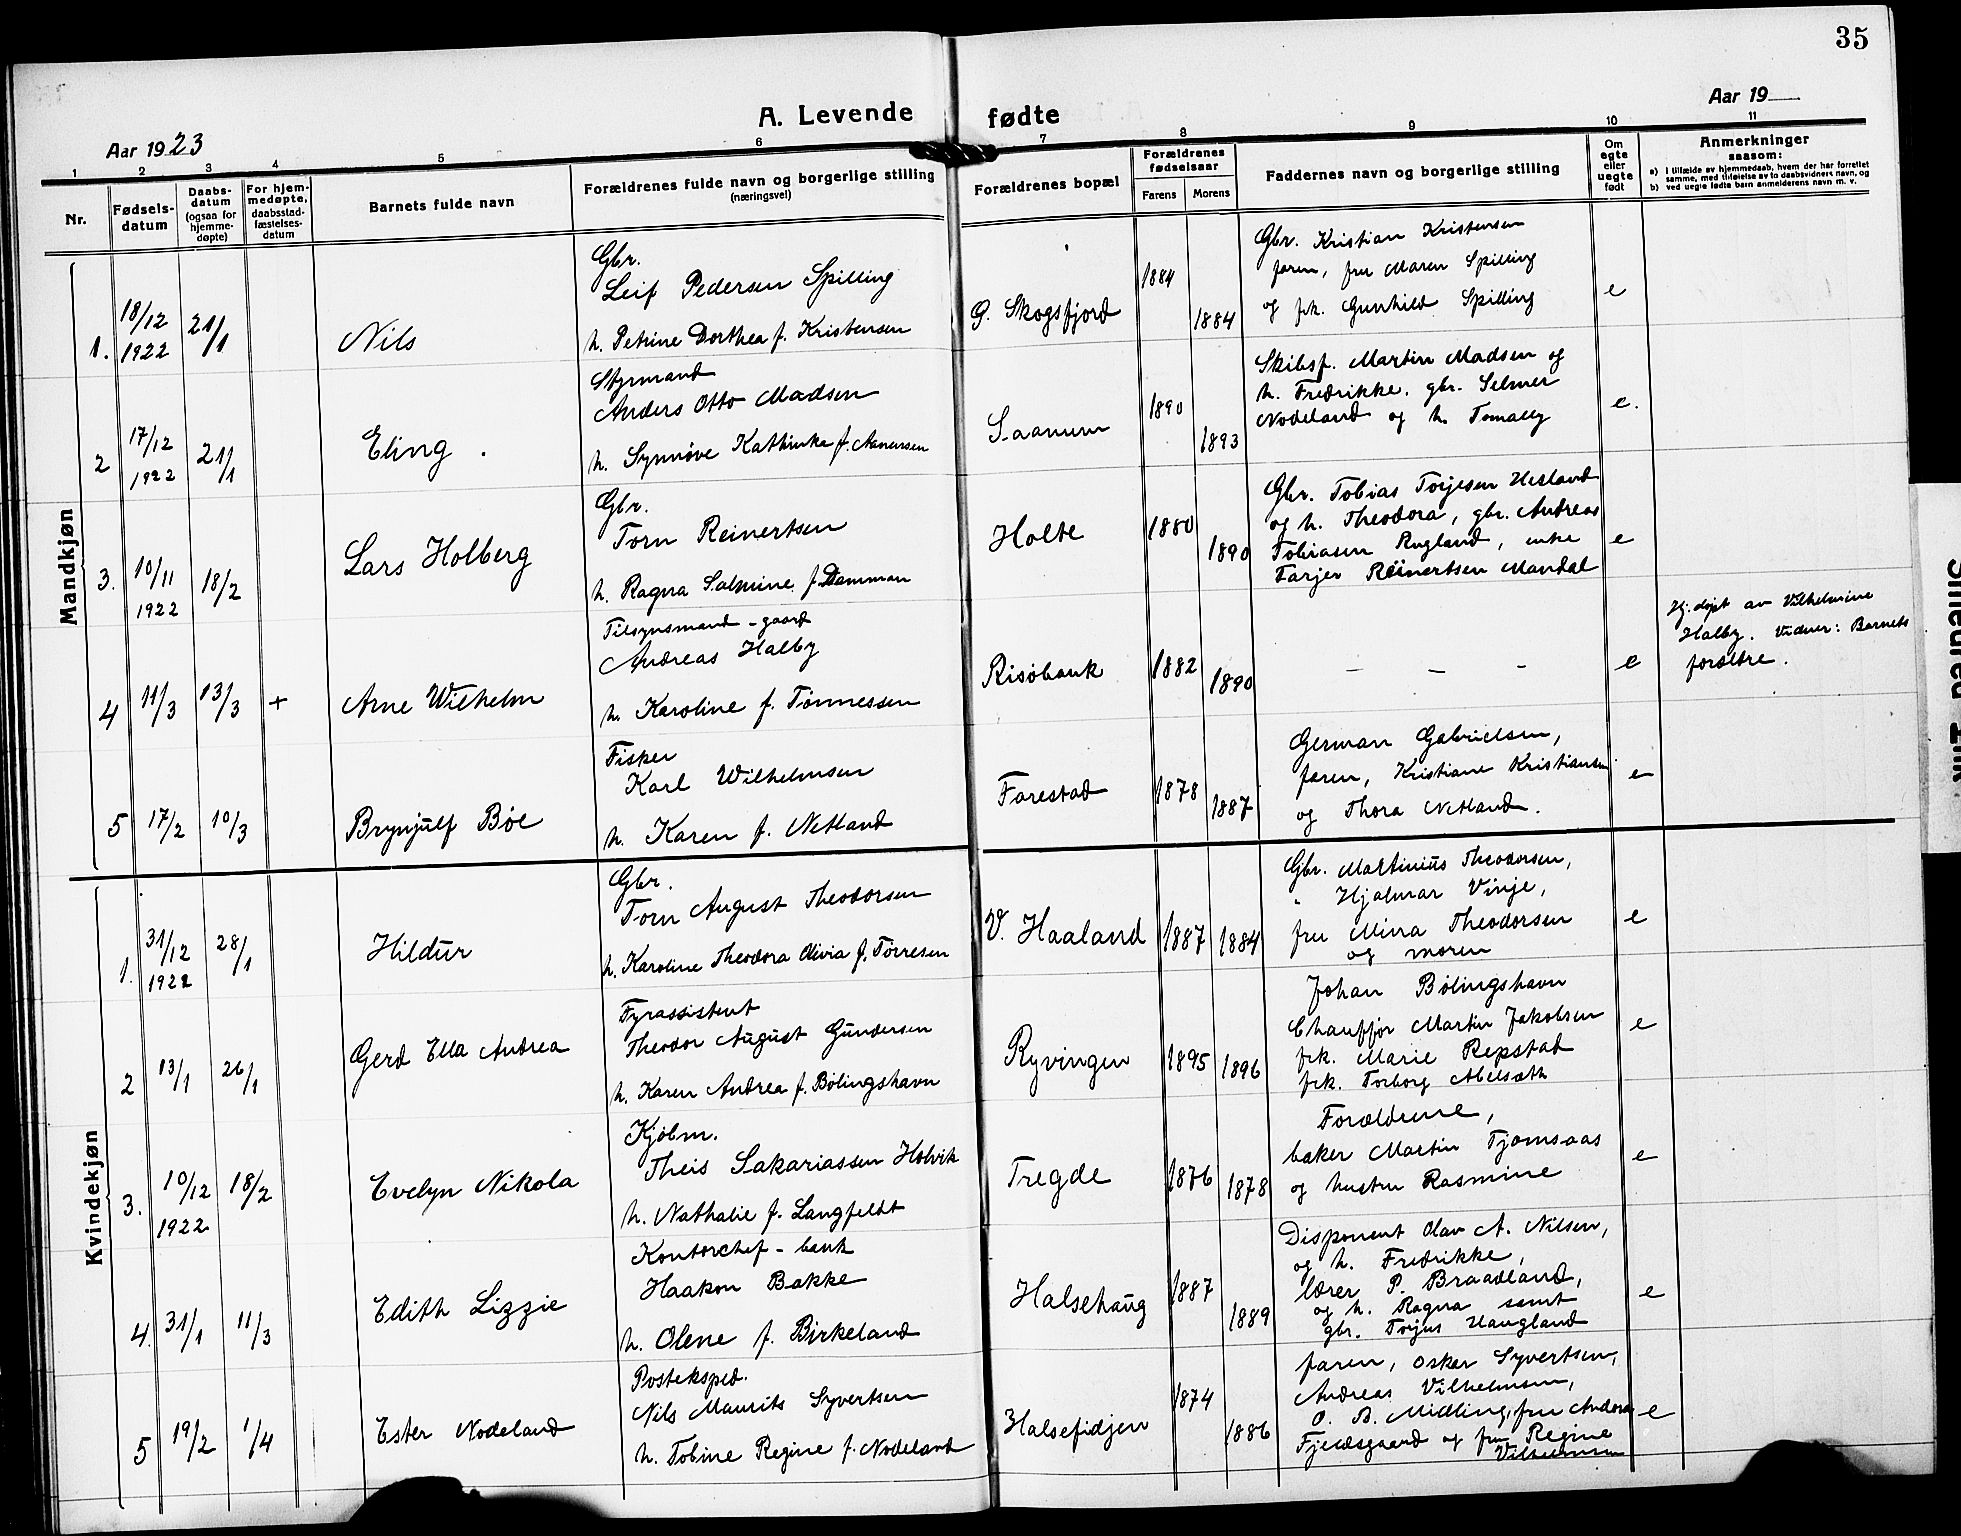 35
A. Levende fødte
Aar 1923
Aar 19
1 2 3 4 5 6 7 8 9 10 11
Nr.
Fødsels-
datum
Daabs-
datum
(ogsaa for
hjemme-
døpte)
For hjem-
medøpte,
daabsstad-
fæstelses-
datum
Barnets fulde navn
Forældrenes fulde navn og borgerlige stilling
(næringsvei)
Forældrenes bopæl
Forældrenes
fødselsaar
Farens Morens
Faddernes navn og borgerlige stilling
Om
egte
eller
uegte
født
Anmerkninger
saasom:
a) I tilfælde av hjemmedaab, hvem der har forrettet
samme, med tilføielse av to daabsvidners navn, og
b) ved uegte fødte barn anmelderens navn m. v.
Mandkjøn
1. 18/12 1922 21/1
Nils
Gbr.
Leif Pedersen Spilling
h. Petrine Dorthea f. Kristensen
G. Skogsfjord
1884 1884
Gbr. Kristian Kristensen
faren, fru Maren Spilling
og frk. Gunhild Spilling
e
2 17/12 1922 21/1
Eling.
Styrmand
Anders Otto Madsen
h. Synnøve Kathinka f. Aanensen
Saanum
1890 1893
Skibsf. Martin Madsen og
h. Fredrikke, gbr. Selmer
Nodeland og h. Tomally
e.
3. 10/11 1922 18/2
Lars Holberg
Gbr.
Torn Reinertsen
h. Ragna Salmine f. Damman
Holte
1880 1890
Gbr. Tobias Torjesen Hesland
og h. Theodora, gbr. Andreas
Tobiasen Rugland, enke
Tarjer Reinertsen Mandal
e
4 11/3 13/3 +
Arne Wilhelm
Tilsynsmand - gaard
Andreas Halby
h. Karoline f. Tønnessen
Risøbank
1882 1890
- - -
e
Hj. døpt av Vilhelmine
Halby. Vidner: Barnets
forældre.
5 17/2 10/3
Brynjulf Bøe
Fisker
Karl Wilhelmsen
h. Karen f. Netland
Farestad
1878 1887
German Gabrielsen,
faren, Kristiane Kristiansen
og Thora Netland.
e
Kvindekjøn
1. 31/12 1922 28/1
Hildur
Gbr.
Torn August Theodorsen
h. Karoline Theodora Olivia f. Torresen
V. Haaland
1887 1884
Gbr. Martinius Theodorsen,
" Hjalmar Vinje,
fru Mina Theodorsen
og moren
e
2 13/1 26/1
Gerd Ella Andrea
Fyrassistent
Theodor August Gundersen
h. Karen Andrea f. Bølingshavn
Ryvingen
1895 1896
Johan Bølingshavn
Chauffør Martin Jakobsen
frk. Marie Repstad
frk. Torborg Abelsæth
e
3. 10/12 1922 18/2
Evelyn Nikola
Kjøbm.
Theis Sakariassen Holvik
h. Nathalie f. Langfeldt
Tregde
1876 1878
Forældrene,
baker Martin Tjomsaas
og hustru Rasmine
e
4. 31/1 11/3
Edith Lizzie
Kontorchef - bank
Haakon Bakke
h. Olene f. Birkeland
Halsehaug
1887 1889
Disponent Olav A. Nilsen,
og h. Fredrikke,
lærer P. Braadland,
og h. Ragna samt
gbr. Torjus Haugland
e
5 19/2 1/4
Ester Nodeland
Postekspd.
Nils Maurits Syvertsen
h. Tobine Regine f. Nodeland
Halsefidjen
1874 1886
faren, Oskar Syvertsen,
Andreas Vilhelmsen,
O. B. Midling, fru Andora
Fjeldsgaard og fru Regine
Vilhelmsen
e